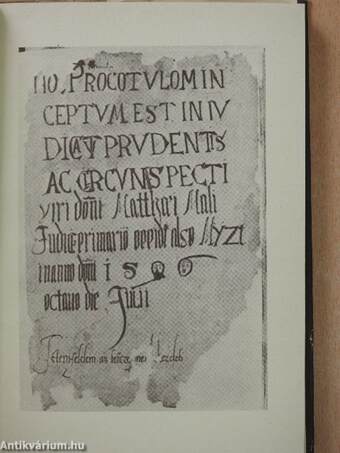 HO. PROCOTVLOM IN
CEPTVM EST IN IV
DICATV PRVDENTIS
AC CIRCVNSPECTI
viri domi Matthei Mali
Judice primario oppidi also Myzi
in anno domi 1 5 9 6
octavo die Julii
Antikvárium.hu